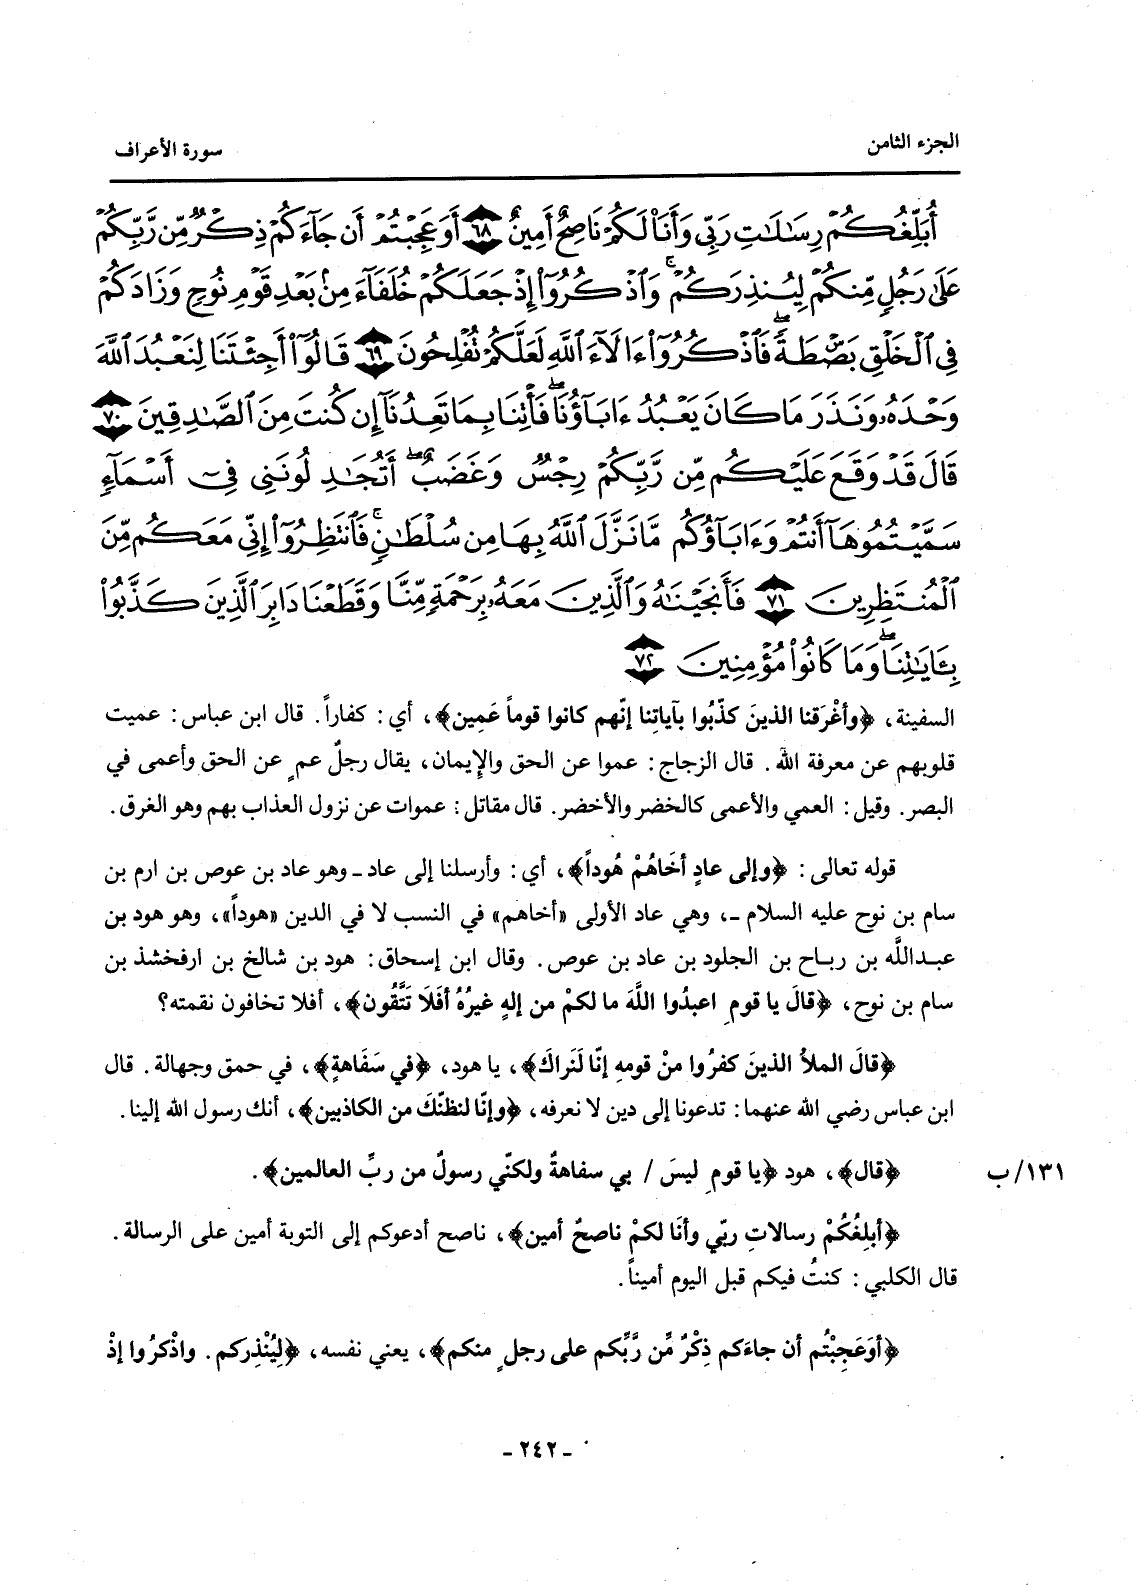 الجزء الثامن
سورة الأعراف
أُبَلِّغُكُمْ رِسَٰلَٰتِ رَبِّى وَأَنَا۠ لَكُمْ نَاصِحٌ أَمِينٌ ٦٨ أَوَعَجِبْتُمْ أَن جَآءَكُمْ ذِكْرٌ مِّن رَّبِّكُمْ
عَلَىٰ رَجُلٍ مِّنكُمْ لِيُنذِرَكُمْ ۚ وَٱذْكُرُوٓا۟ إِذْ جَعَلَكُمْ خُلَفَآءَ مِنۢ بَعْدِ قَوْمِ نُوحٍ وَزَادَكُمْ
فِى ٱلْخَلْقِ بَصْۜطَةً ۖ فَٱذْكُرُوٓا۟ ءَالَآءَ ٱللَّهِ لَعَلَّكُمْ تُفْلِحُونَ ٦٩ قَالُوٓا۟ أَجِئْتَنَا لِنَعْبُدَ ٱللَّهَ
وَحْدَهُۥ وَنَذَرَ مَا كَانَ يَعْبُدُ ءَابَآؤُنَا ۖ فَأْتِنَا بِمَا تَعِدُنَآ إِن كُنتَ مِنَ ٱلصَّٰدِقِينَ ٧٠
قَالَ قَدْ وَقَعَ عَلَيْكُم مِّن رَّبِّكُمْ رِجْسٌ وَغَضَبٌ ۖ أَتُجَٰدِلُونَنِى فِىٓ أَسْمَآءٍ
سَمَّيْتُمُوهَآ أَنتُمْ وَءَابَآؤُكُم مَّا نَزَّلَ ٱللَّهُ بِهَا مِن سُلْطَٰنٍ ۚ فَٱنتَظِرُوٓا۟ إِنِّى مَعَكُم مِّنَ
ٱلْمُنتَظِرِينَ ٧١ فَأَنجَيْنَٰهُ وَٱلَّذِينَ مَعَهُۥ بِرَحْمَةٍ مِّنَّا وَقَطَعْنَا دَابِرَ ٱلَّذِينَ كَذَّبُوا۟
بِـَٔايَٰتِنَا ۖ وَمَا كَانُوا۟ مُؤْمِنِينَ ٧٢
السفينة، ﴿وأغْرَقنا الذينَ كذّبُوا بآياتِنا إنّهم كانوا قوماً عَمِين﴾، أي: كفاراً. قال ابن عباس: عميت
قلوبهم عن معرفة الله. قال الزجاج: عموا عن الحق والإيمان، يقال رجلٌ عمٍ عن الحق وأعمى في
البصر. وقيل: العمي والأعمى كالخضر والأخضر. قال مقاتل: عموات عن نزول العذاب بهم وهو الغرق.
قوله تعالى: ﴿وإلى عادٍ أخَاهُمْ هُوداً﴾، أي: وأرسلنا إلى عاد ـ وهو عاد بن عوص بن ارم بن
سام بن نوح عليه السلام ـ، وهي عاد الأولى «أخاهم» في النسب لا في الدين «هوداً»، وهو هود بن
عبدالله بن رباح بن الجلود بن عاد بن عوص. وقال ابن إسحاق: هود بن شالخ بن ارفخشذ بن
سام بن نوح، ﴿قالَ يا قومِ اعبدُوا اللَّهَ ما لكمْ من إلهٍ غيرُهُ أفَلَا تَتَّقُون﴾، أفلا تخافون نقمته؟
﴿قالَ الملأُ الذينَ كفرُوا منْ قومهِ إنّا لَنَراكَ﴾، يا هود، ﴿في سَفَاهةٍ﴾، في حمق وجهالة. قال
ابن عباس رضي الله عنهما: تدعونا إلى دين لا نعرفه، ﴿وإنّا لنظنّكَ من الكاذبين﴾، أنك رسول الله إلينا.
﴿قال﴾، هود ﴿يا قومِ ليسَ / بي سفاهةٌ ولكنّي رسولٌ من ربِّ العالمين﴾.
١٣١/ب
﴿أبلِغُكُمْ رسالاتِ ربّي وأنَا لكمْ ناصحٌ أمين﴾، ناصح أدعوكم إلى التوبة أمين على الرسالة.
قال الكلبي: كنتُ فيكم قبل اليوم أميناً.
﴿أوَعَجِبْتُم أن جاءَكم ذِكْرٌ مِّن رَّبِّكم على رجلٍ منكم﴾، يعني نفسه، ﴿لِيُنْذِركم. واذْكرُوا إذْ
ـ ٢٤٢ ـ